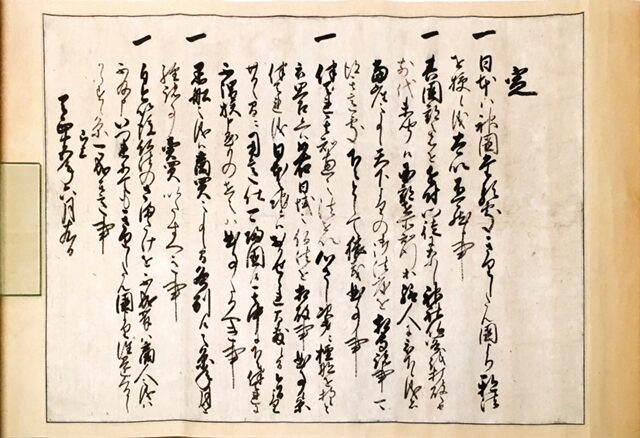 定
一 日本ハ神国たる処きりしたん国より邪法
を授候儀太以不可然候事
一 其国郡之者を近付門徒になし神社仏閣を打破之由
前代未聞候国郡在所知行等給人に被下候儀者
当座之事候天下よりの御法度を相守諸事可
得其意処下々として猥義曲事事
一 伴天連其知恵之法を以心さし次第ニ檀那を持候と
被思召候へハ如右日域之仏法を相破事曲事候条
伴天連儀日本之地ニハおかせられ間敷候間今日より
廿日之間ニ用意仕可帰国候其中に下々伴天連に
不謂族申懸もの在之ハ曲事たるへき事
一 黒船之儀ハ商買之事候間各別候之条年月を
経諸事売買いたすへき事
一 自今以後仏法のさまたけを不成輩ハ商人之儀ハ
不及申いつれにてもきりしたん国より往還くる
しからす候条可成其意事
已上
天正十五年六月十九日